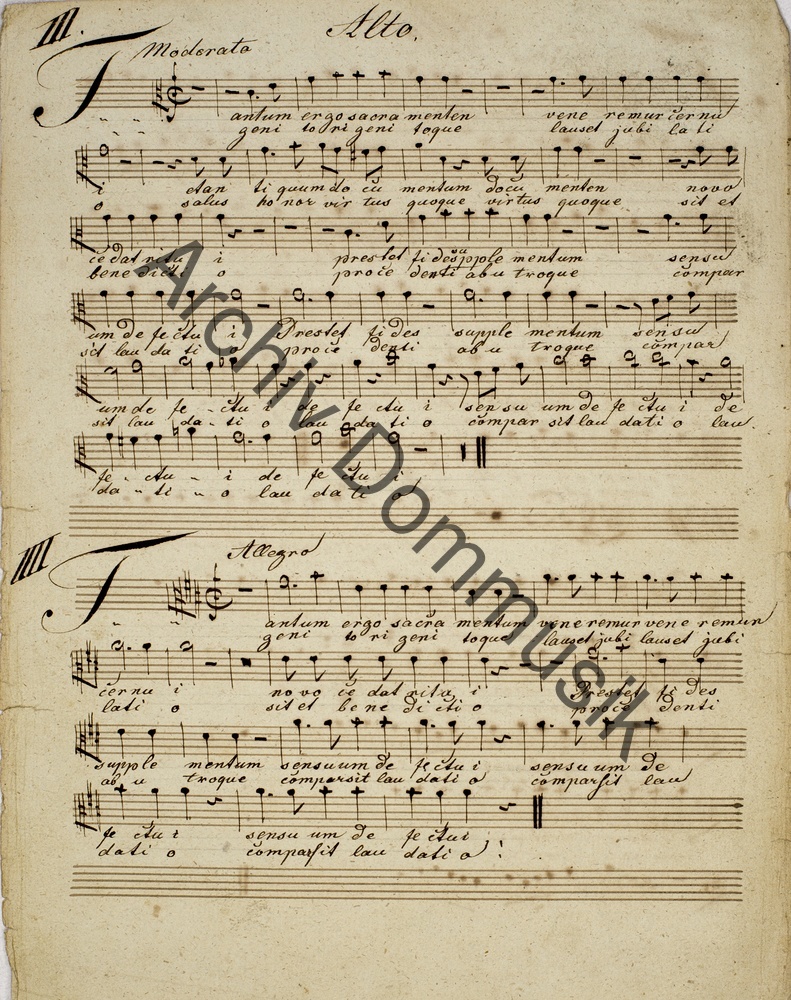 III.
Alto.
Moderato
T antum ergo sacra menten vene remur cernu
geni to ri geni toque lauset jubi la ti
i etan ti quum do cu mentum docu menten novo
o salus ho nor vir tus quoque virtus quoque sit et
cedat ritu i prestet fi des supple mentum sensu
bene dicti o proce denti ab u troque compar
um de fe ctu i Prestet fi des supple mentum sensu
sit lau da ti o proce denti ab u troque compar
um de fe - ctu i de fe ctu i sensu um de fe ctu i de
sit lau da - ti o lau da ti o compar sit lau dati o lau
fe - ctu - i de fe ctu i
da - ti - o lau da ti o
IIII
Allegro
T antum ergo sacra mentum vene remur vene remur
geni to ri geni toque lauset jubi lauset jubi
cernu i novo ce dat ritu i Prestet fi des
lati o sit et bene dicti o proce denti
supple mentum sensuum de fe ctu i sensu um de
ab u troque comparsit lau dati o comparsit lau
fe ctu i sensu um de fe ctui
dati o comparsit lau dati o
Archiv Dommusik